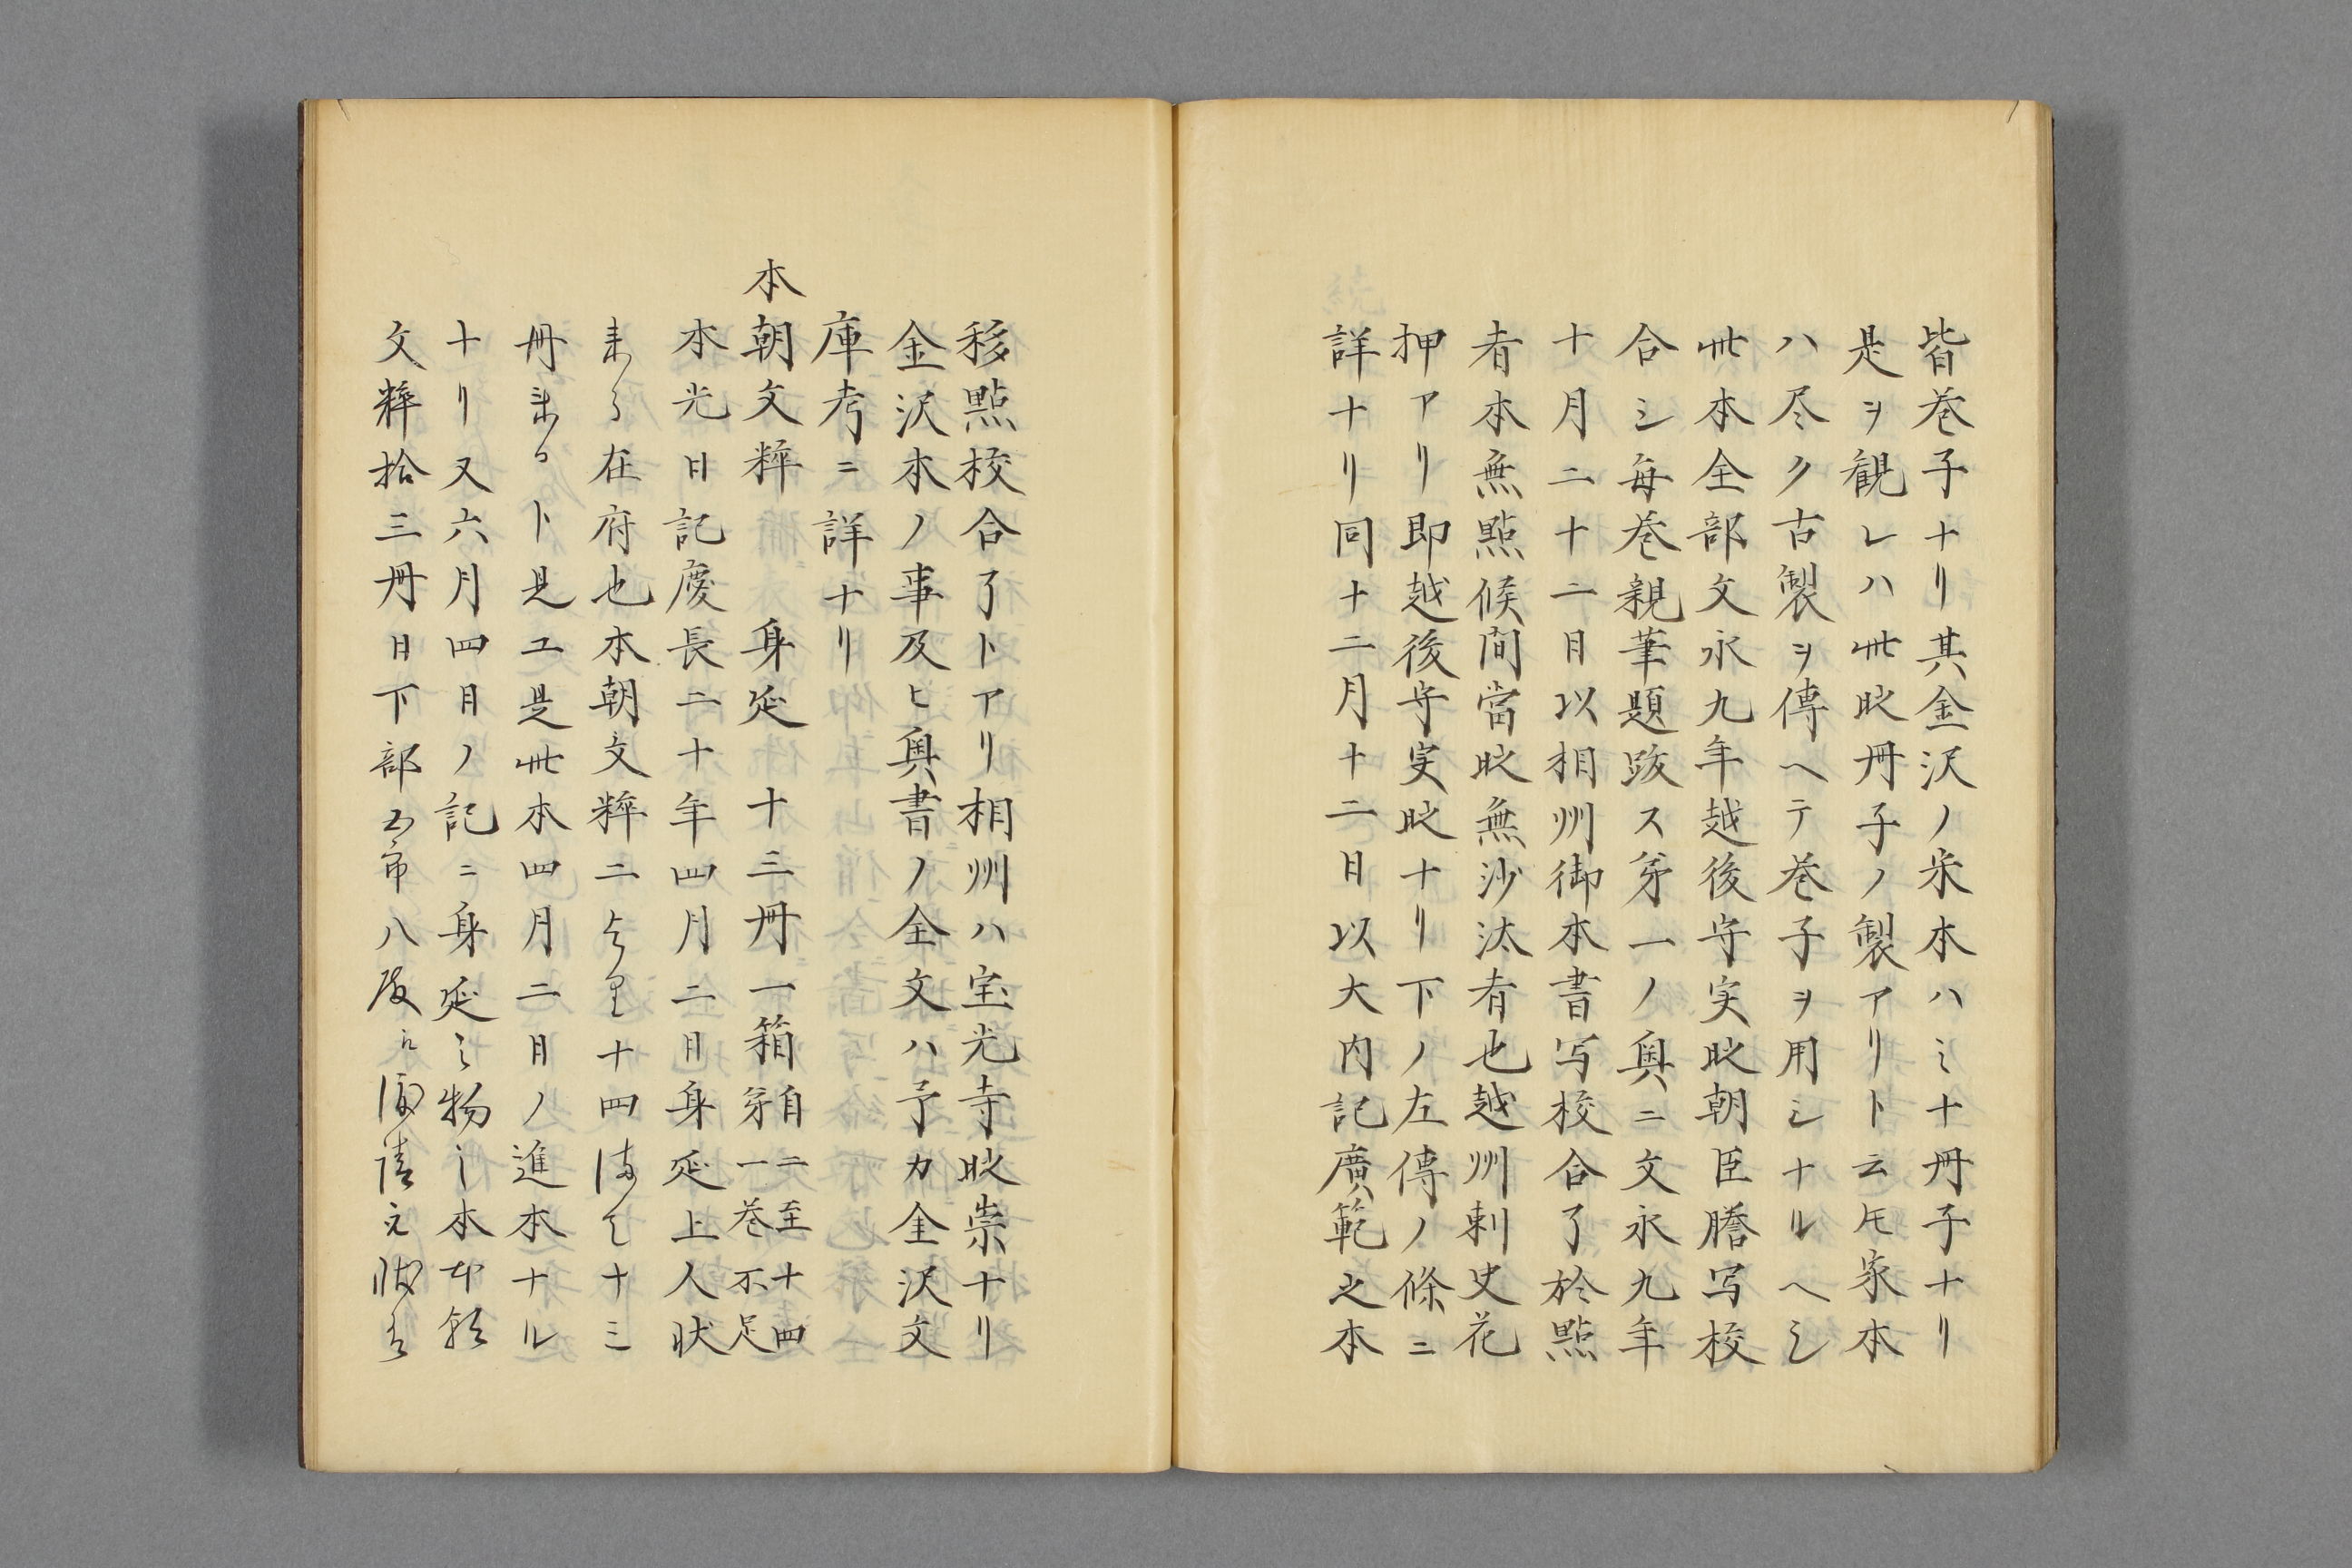 皆巻子ナリ其金沢ノ宋本ハミナ冊子ナリ
是ヲ観レハ此時冊子ノ製アリト云𪜈家本
ハ尽ク古製ヲ傳ヘテ巻子ヲ用シナルヘシ
此本全部文永九年越後守実時朝臣謄写校
合シ毎巻親筆題跋ス第一ノ奥ニ文永九年
十月二十二日以相州御本書写校合了於點
者本無點候間當時無沙汰者也越州刺史花
押アリ即越後守実時ナリ下ノ左傳ノ條ニ
詳ナリ同十二月十二日以大内記廣範之本
移點校合了トアリ相州ハ宝光寺時崇ナリ
金沢本ノ事及ヒ奥書ノ全文ハ予カ金沢文
庫考ニ詳ナリ
本朝文粹　身延　十三冊一箱自二至十四第一巻不足
本光日記慶長二十年四月二日身延上人状
来ル在府也本朝文粹二ノより十四迄ナ三
冊来ルト是ユ是此本四月二日ノ進本ナル
ナリ又六月四日ノ記ニ身延ミ物シ本
文粹拾三冊日下部五郎八